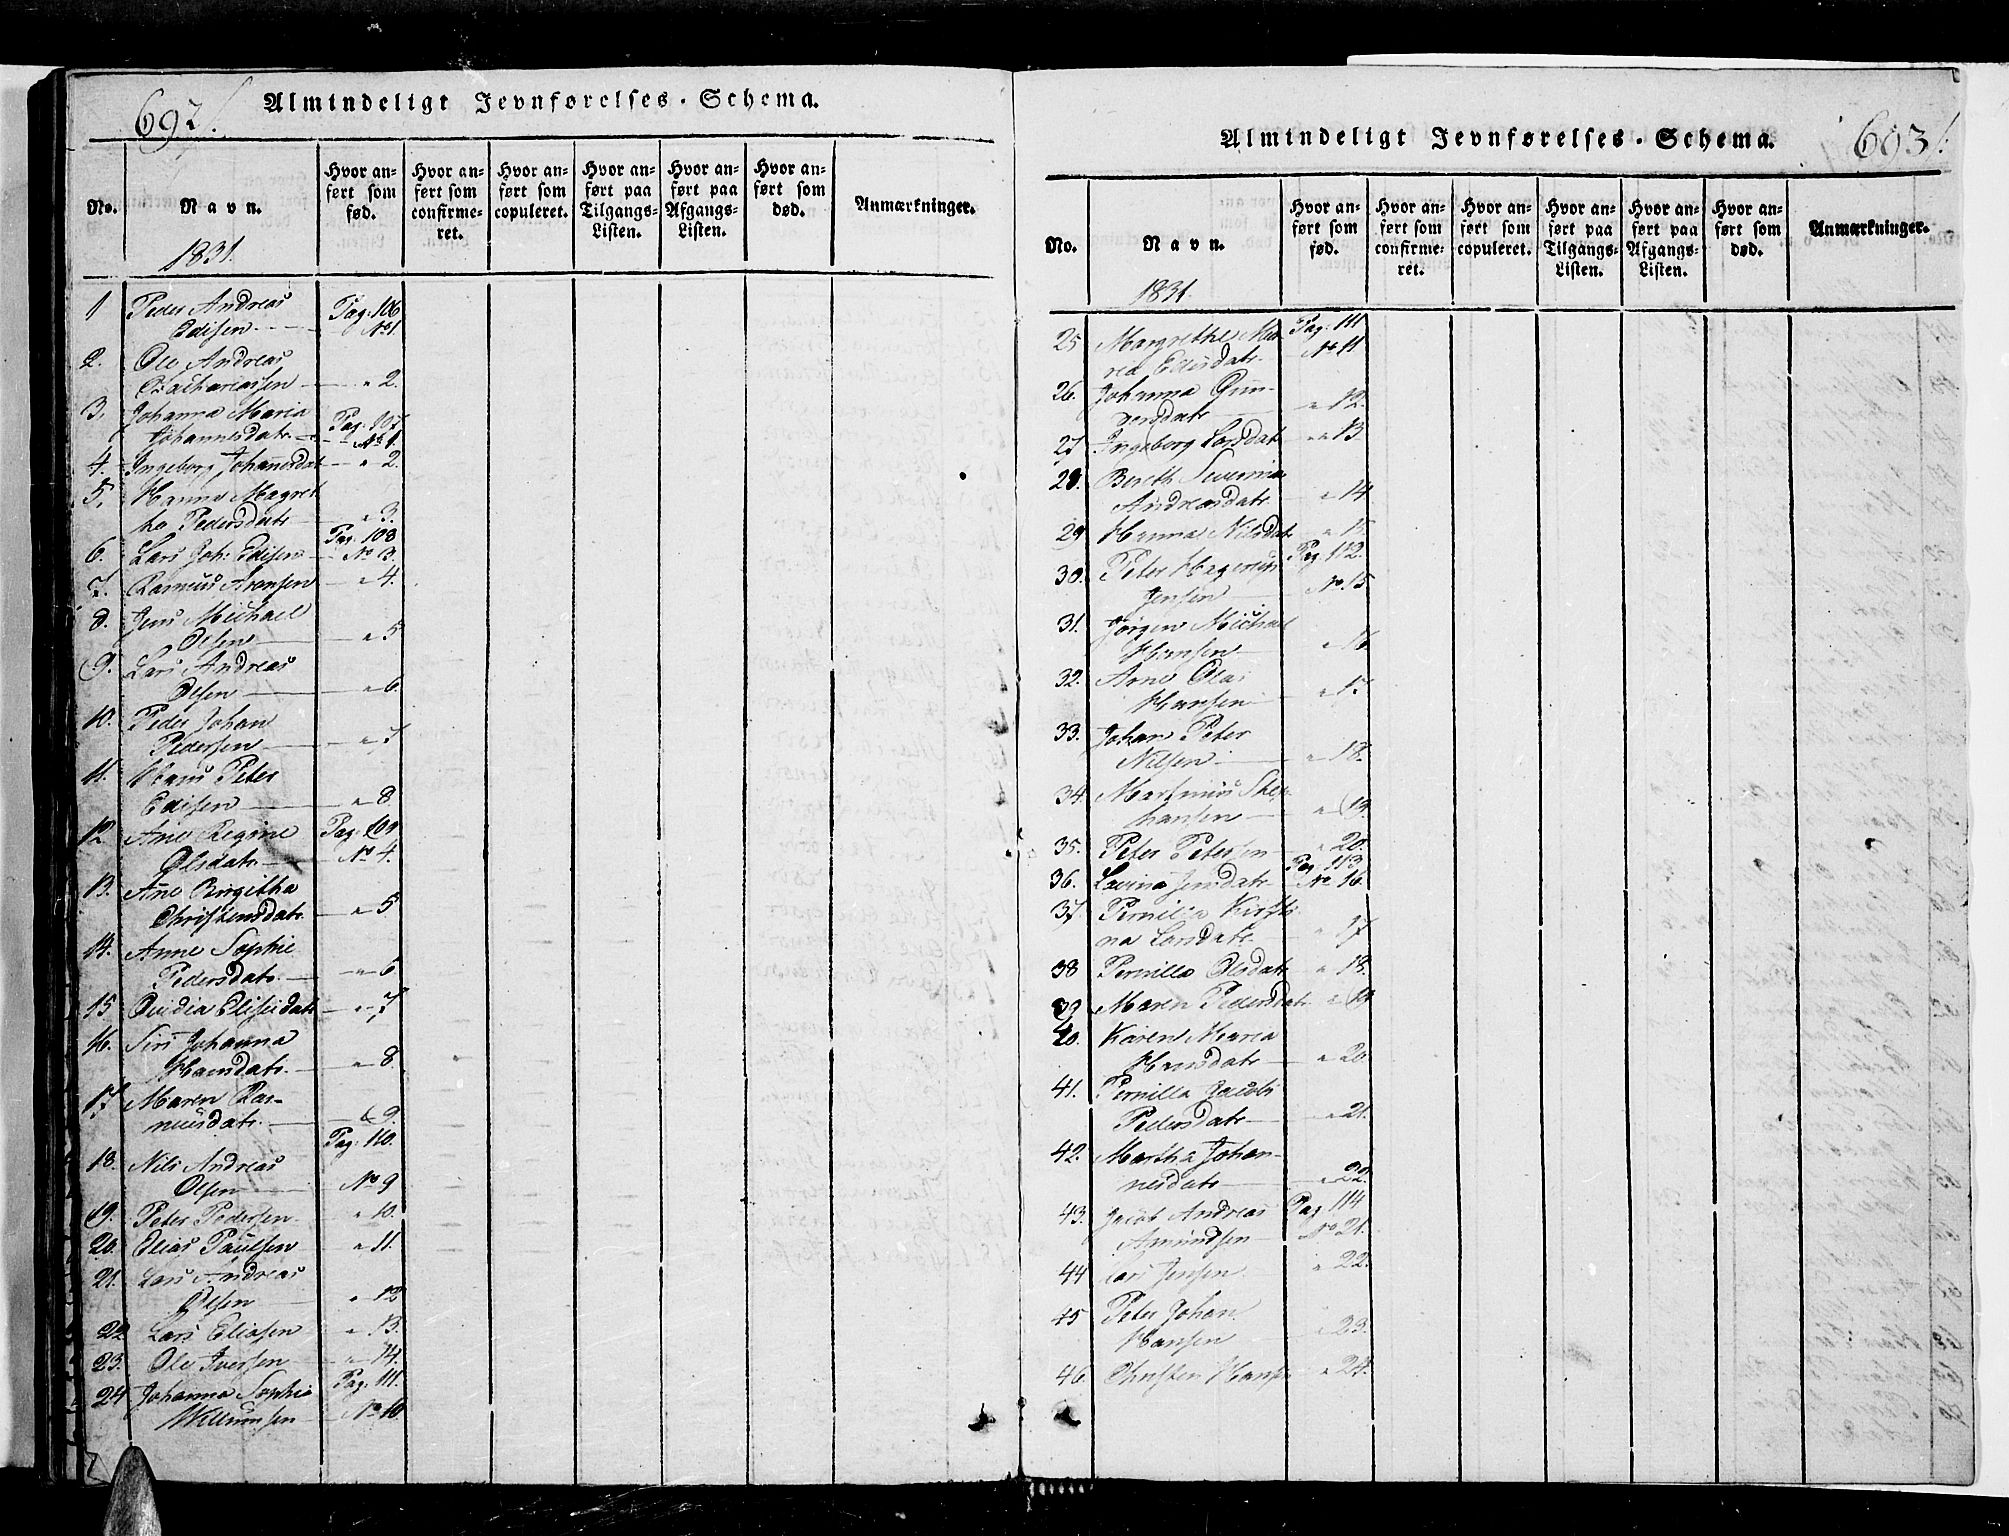 692.
Almindeligt Jevnførelses-Schema.
No.
Navn.
Hvor an-
ført som
fød.
Hvor an-
ført som
confirme-
ret.
Hvor an-
ført som
copuleret.
Hvor an-
ført paa
Tilgangs-
Listen.
Hvor an-
ført paa
Afgangs-
Listen.
Hvor an-
ført som
død.
Anmærkninger.
1831.
1 Peder Andreas Pag: 106
Edisen No 1.
2. Ole Andreas
Zachariassen " 2.
3. Johanna Maria Pag: 107
Johannesdatr. No 1.
4. Ingeborg Johanesdat " 2.
5. Hanna Magret
ha Pedersdatr " 3.
Pag: 108
6. Lars Joh: Edisen No 3.
7. Rasmus Arensen " 4.
8. Jens Michael
Olsen " 5
9. Lars Andreas
Olsen " 6.
10. Peder Johan
Pedersen " 7
11. Hans Peter
Edisen " 8
12 Ane Regine Pag: 109
Olsdatr. No 4.
13. Ane Birgitha
Christensdatr. " 5
14. Anne Sophie
Pedersdatr. " 6
15 Ovidia Elisedatr " 7
16. Siri Johanna
Hansdatr. " 8.
17 Maren Ras-
musdatr. " 9.
Pag: 110.
18. Nils Andreas
Olsen No 9
19. Peter Pedersen " 10.
20. Elias Paulsen " 11.
21. Lars Andreas
Olsen " 12
22 Lars Eliasen " 13.
23. Ole Iversen " 14.
24 Johanna Sophie Pag: 111.
Willumsen No 10
693.
Almindeligt Jevnførelses-Schema.
No.
Navn.
Hvor an-
ført som
fød.
Hvor an-
ført som
confirme-
ret.
Hvor an-
ført som
copuleret.
Hvor an-
ført paa
Tilgangs-
Listen.
Hvor an-
ført paa
Afgangs-
Listen.
Hvor an-
ført som
død.
Anmærkninger.
1831.
25 Margrethe Ma Pag: 111
ria Edisdatr. No 11
26. Johanna Gun-
versdatr " 12.
27 Ingeborg Larsdatr " 13.
28. Bereth Severine
Andreasdatr " 14.
29 Hanna Nilsdatr
30. Peter Hagerup Pag 112.
Jensen No. 15
31. Jörgen Michael
Hansen " 16
32. Arne Olai
Hansen " 17
33. Johan Peter
Nilsen " 18.
34. Martinus Step
hansen " 19.
35. Peter Petersen " 20.
Pag 113.
36. Lavina Jensdatr No 16.
37. Pernilla Kirsti
na Larsdatr. " 17
38 Pernilla Olsdatr " 18.
39 Maren Pedersdatr " 19
40. Karen Maria
Hansdatr " 20
41. Pernilla Jacobi
Pedersdatr " 21.
42. Martha Johan-
nesdatr " 22.
43. Jacob Andreas Pag 114
Amundsen No 21.
44 Lars Jensen " 22.
45 Peter Johan
Hansen " 23.
46. Christen Hansen " 24.